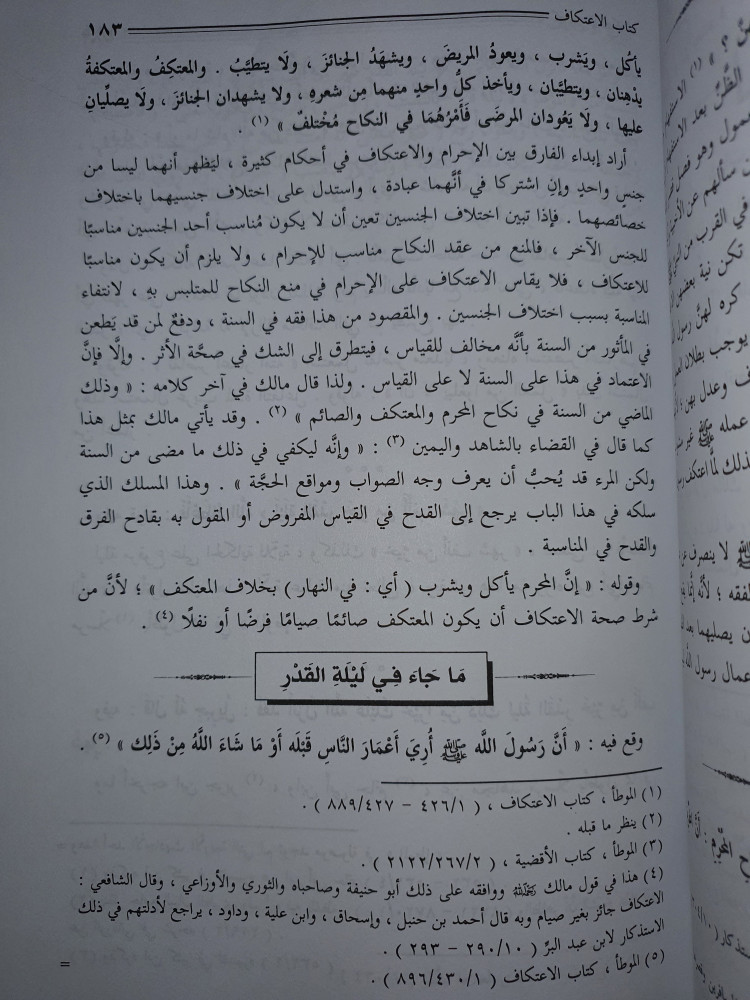 كتاب الاعتكاف ١٨٣
يأكُل ، ويَشرب ، ويعودُ المريضَ ، ويشهَدُ الجنائزَ ، ولَا يتطيَّبُ . والمعتكِفُ والمعتكفةُ
يدَّهِنان ، ويتطيَّبان ، ويأخذ كلُّ واحدٍ منهما مِن شعرهِ ، ولا يشهدان الجنائزَ ، ولَا يصلِّيانِ
عليها ، ولَا يَعُودان المرضَى فَأَمْرُهُمَا في النكاح مُخْتلفٌ » (١) .
أراد إبداء الفارق بين الإحرام والاعتكاف في أحكام كثيرة ، ليَظهر أنهما ليسا من
جنسٍ واحدٍ وإنِ اشتركا في أنَّهما عبادة ، واستدل على اختلاف جنسيهما باختلاف
خصائصهما . فإذا تبين اختلاف الجنسين تعين أن لا يكون مُناسب أحد الجنسين مناسبًا
للجنس الآخر ، فالمنع من عقد النكاح مناسب للإحرام ، ولا يلزم أن يكون مناسبًا
للاعتكاف ، فلا يقاس الاعتكاف على الإحرام في منع النكاح للمتلبس بهِ ، لانتفاء
المناسبة بسبب اختلاف الجنسين . والمقصود من هذا فقه في السنة ، ودفعٌ لمن قد يَطعن
في المأثور من السنة بأنَّه مخالف للقياس ، فيتطرق إلى الشك في صحَّة الأثر . وإلَّا فإنَّ
الاعتماد في هذا على السنة لا على القياس . ولذا قال مالك في آخر كلامه : « وذلك
الماضي من السنة في نكاح المحرم والمعتكف والصائم » (٢) . وقد يأتي مالك بمثل هذا
كما قال في القضاء بالشاهد واليمين (٣) : « وإنَّه ليكفي في ذلك ما مضى من السنة
ولكن المرء قد يُحبُّ أن يعرف وجه الصواب ومواقع الحجَّة » . وهذا المسلك الذي
سلكه في هذا الباب يرجع إلى القدح في القياس المفروض أو المقول به بقادح الفرق
والقدح في المناسبة .
وقوله : « إنَّ المحرم يأكل ويشرب ( أي : في النهار ) بخلاف المعتكف » ؛ لأنَّ من
شرط صحة الاعتكاف أن يكون المعتكف صائمًا صيامًا فرضًا أو نفلًا (٤) .
مَا جَاءَ فِي لَيْلَةِ القَدْرِ
وقع فيه : « أَنَّ رَسُولَ اللَّه ﷺ أُرِيَ أَعْمَارَ النَّاسِ قَبْلَه أَوْ مَا شَاءَ اللَّهُ مِنْ ذَلِك » (٥) .
(١) الموطأ ، كتاب الاعتكاف ، ( ٤٢٦/١ – ٨٨٩/٤٢٧ ) .
(٢) ينظر ما قبله .
(٣) الموطأ ، كتاب الأقضية ، ( ٢١٢٢/٢٦٧/٢ ) .
(٤) هذا في قول مالك ووافقه على ذلك أبو حنيفة وصاحباه والثوري والأوزاعي ، وقال الشافعي :
الاعتكاف جائز بغير صيام وبه قال أحمد بن حنبل ، وإسحاق ، وابن علية ، وداود ، يراجع لأدلتهم في ذلك
الاستذكار لابن عبد البرِّ ( ٢٩٠/١٠ – ٢٩٣ ) .
(٥) الموطأ ، كتاب الاعتكاف ( ٨٩٦/٤٣٠/١ ) .
=